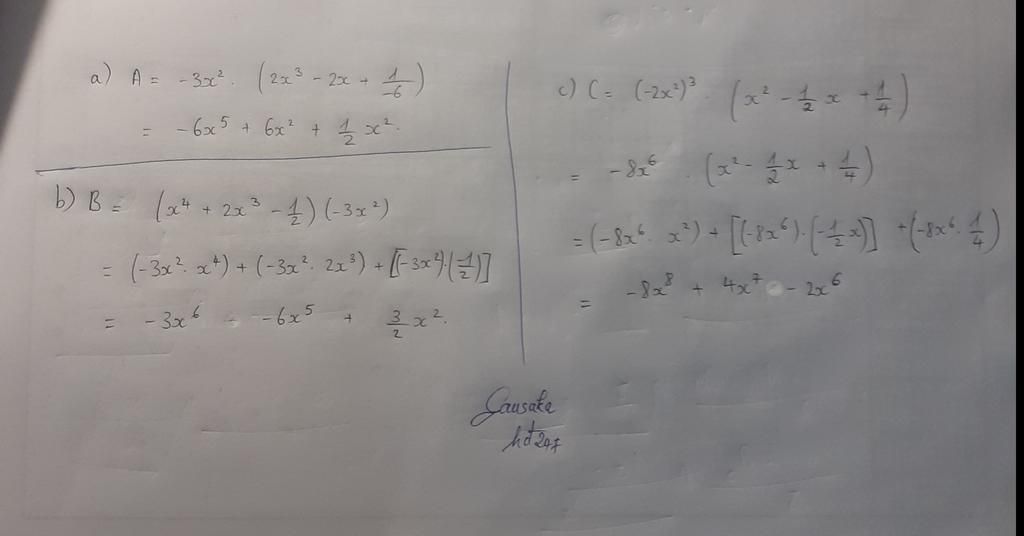 a) A = -3x² . (2x³ - 2x + 1/-6)
= -6x⁵ + 6x² + 1/2 x².
b) B = (x⁴ + 2x³ - 1/2) (-3x²)
= (-3x² . x⁴) + (-3x² . 2x³) + [(-3x²) . (-1/2)]
= -3x⁶ - -6x⁵ + 3/2 x².
c) C = (-2x²)³ . (x² - 1/2 x + 1/4)
= -8x⁶ . (x² - 1/2 x + 1/4)
= (-8x⁶ . x²) + [(-8x⁶) . (-1/2 x)] + (-8x⁶ . 1/4)
= -8x⁸ + 4x⁷ - 2x⁶